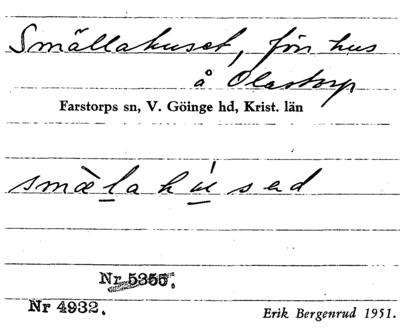 Smällahuset, förr hus
å Olastorp
Farstorps sn, V. Göinge hd, Krist. län
smæ̀lahúsed
Nr 5355.
Nr 4932.
Erik Bergenrud 1951.